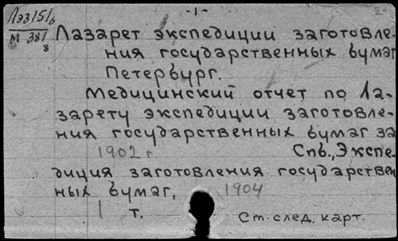 Лэз151/6
М 381/8
- 1 -
Лазарет экспедиции заготовле-
ния государственных бумаг
Петербург.
Медицинский отчет по Ла-
зарету экспедиции заготовле-
ния государственных бумаг за
1902 г. Спб., Экспе-
диция заготовления государствен
ных бумаг, 1904
1 т.
См. след. карт.